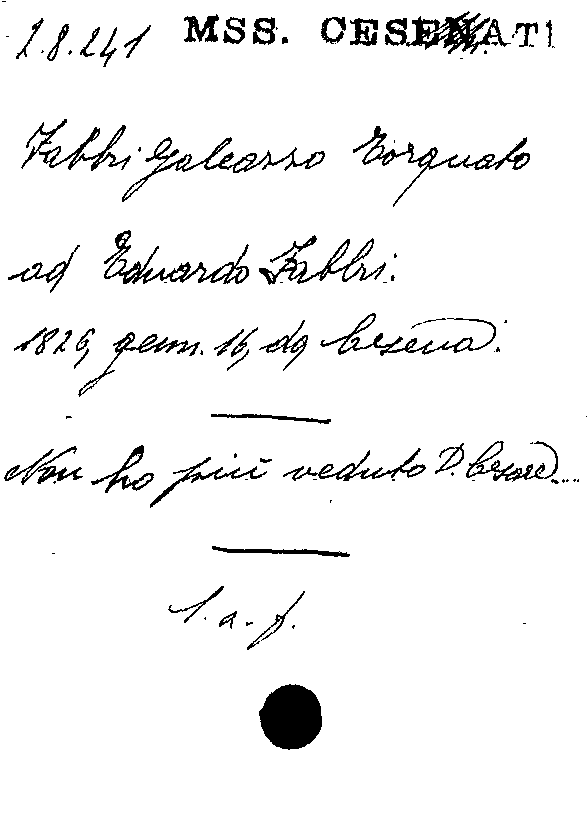 2.8.241 MSS. CESENATI
Fabbri Galeazzo Torquato
ad Eduardo Fabbri.
1829, genn. 16, da Cesena.
Non ho più veduto D. Cesare....
l. a. f.